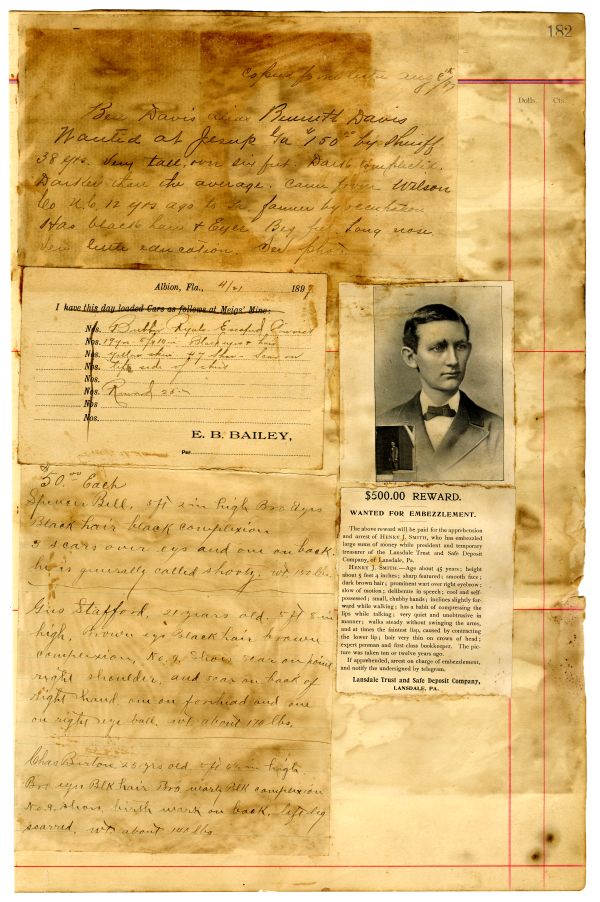 182
Dolls.
Cts.
copied from letter Aug 8th
Ben Davis alias Bennett Davis
Wanted at Jesup Ga $150.00 by Sheriff
38 yrs. Very tall, over six feet. Dark
Darker than the average. Came from Wilson
Co N.C. 12 yrs ago farmer by occupation
Has black hair & Eyes. Big feet, Long nose
Very little education. See photo.
Albion, Fla., 4/21 1899
I have this day loaded Cars as follows at Meigs' Mine:
Nos. Bubby Escaped Convict
Nos. 19 yrs 5/10 in Black eyes & hair
Nos. yellow skin #7 Shoe Scar on
Nos. left side of
Nos.
Nos. Reward 25
Nos.
Nos.
E. B. BAILEY,
Per
$50.00 Each
Spencer Bell, 5ft in high Bro eyes
Black hair black complexion
3 scars over eye and one on back.
he is generally called shorty. wt 150 lbs.
Gus Stafford, 21 years old, 5 ft 8 in
high, brown eys Black hair brown
complexion, No. 9. Shoes scar on point
right shoulder, and scar on back of
right hand, one on forehead and one
on right eye ball. wt about 170 lbs.
Chas Burton 23 yrs old 5ft in high
Bro eyes Blk hair Bro nearly Blk complexion
No 9. shoes, birth mark on back, left leg
scarred, wt about 140 lbs
$500.00 REWARD.
WANTED FOR EMBEZZLEMENT.
The above reward will be paid for the apprehension
and arrest of HENRY J. SMITH, who has embezzled
large sums of money while president and temporary
treasurer of the Lansdale Trust and Safe Deposit
Company, of Lansdale, Pa.
HENRY J. SMITH.—Age about 45 years; height
about 5 feet 4 inches; sharp featured; smooth face;
dark brown hair; prominent wart over right eyebrow;
slow of motion; deliberate in speech; cool and self-
possessed; small, chubby hands; inclines slightly for-
ward while walking; has a habit of compressing the
lips while talking; very quiet and unobtrusive in
manner; walks steady without swinging the arms,
and at times the faintest lisp, caused by contracting
the lower lip; hair very thin on crown of head;
expert penman and first-class bookkeeper. The pic-
ture was taken ten or twelve years ago.
If apprehended, arrest on charge of embezzlement,
and notify the undersigned by telegram.
Lansdale Trust and Safe Deposit Company,
LANSDALE, PA.